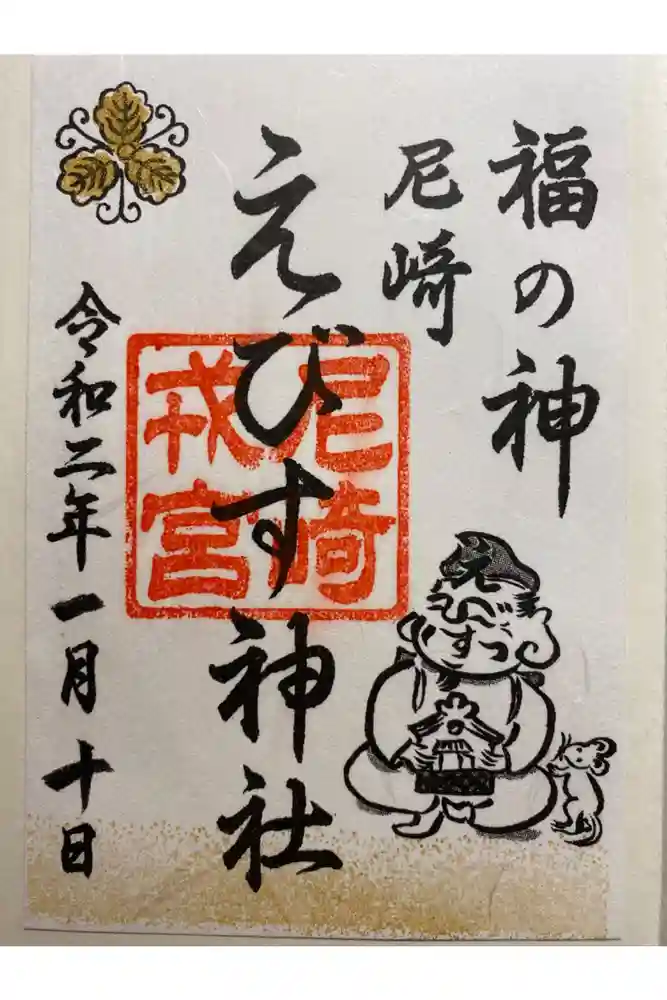 福の神
尼崎
えびす神社
尼崎
戎宮
令和二年一月十日
えべすっ